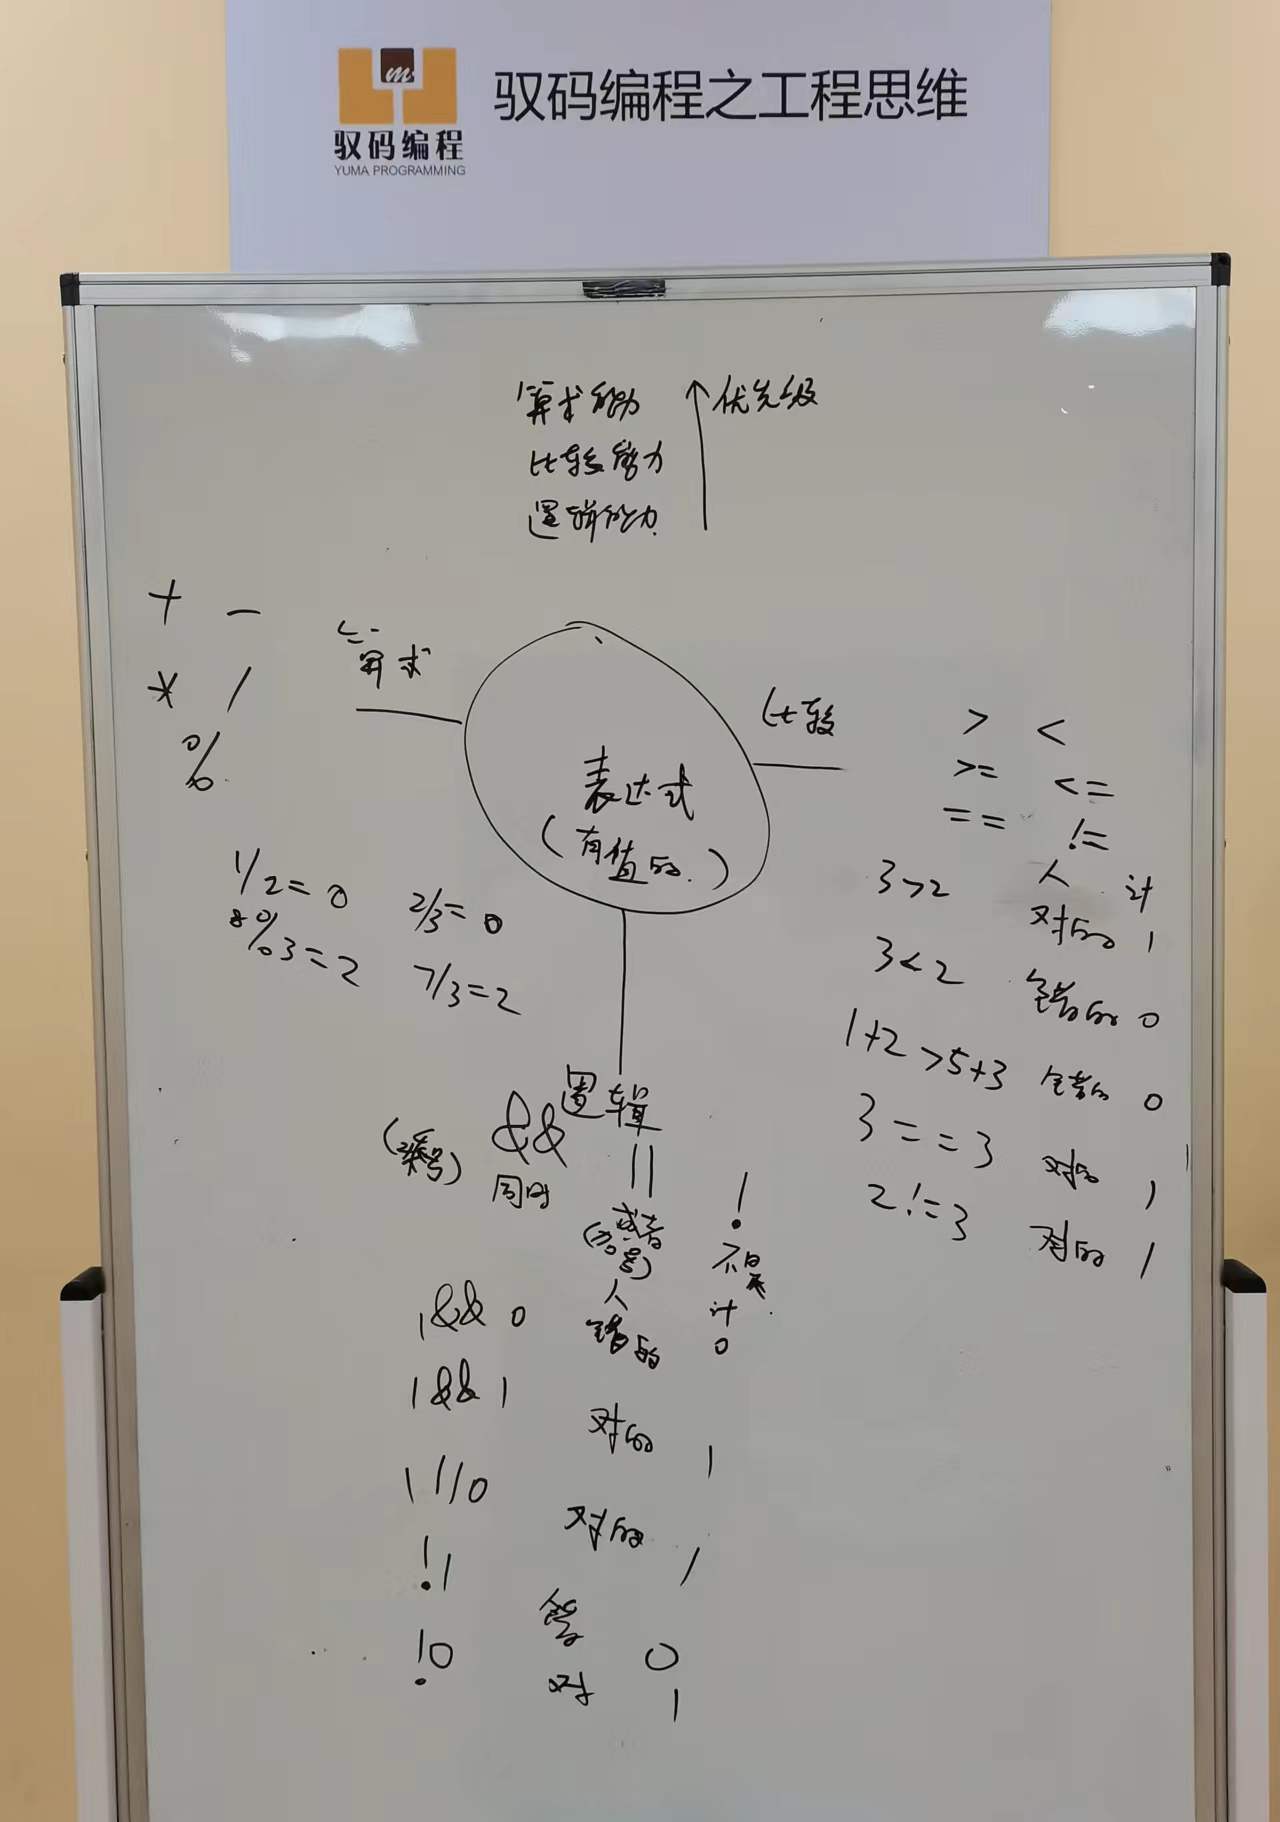 m
驭码编程
YUMA PROGRAMMING
驭码编程之工程思维
算术能力
比较能力
逻辑能力
优先级
+ -
* /
%
算术
1/2=0 2/3=0
8%3=2 7/3=2
表达式
(有值的)
比较
> <
>= <=
== !=
人 计
3>2 对的 1
3<2 错的 0
1+2>5+3 错的 0
3==3 对的 1
2!=3 对的 1
逻辑
(乘号) && || !
同时 或者 不是
(加号)
人 计
1&&0 错的 0
1&&1 对的 1
1||0 对的 1
!1 错 0
!0 对 1